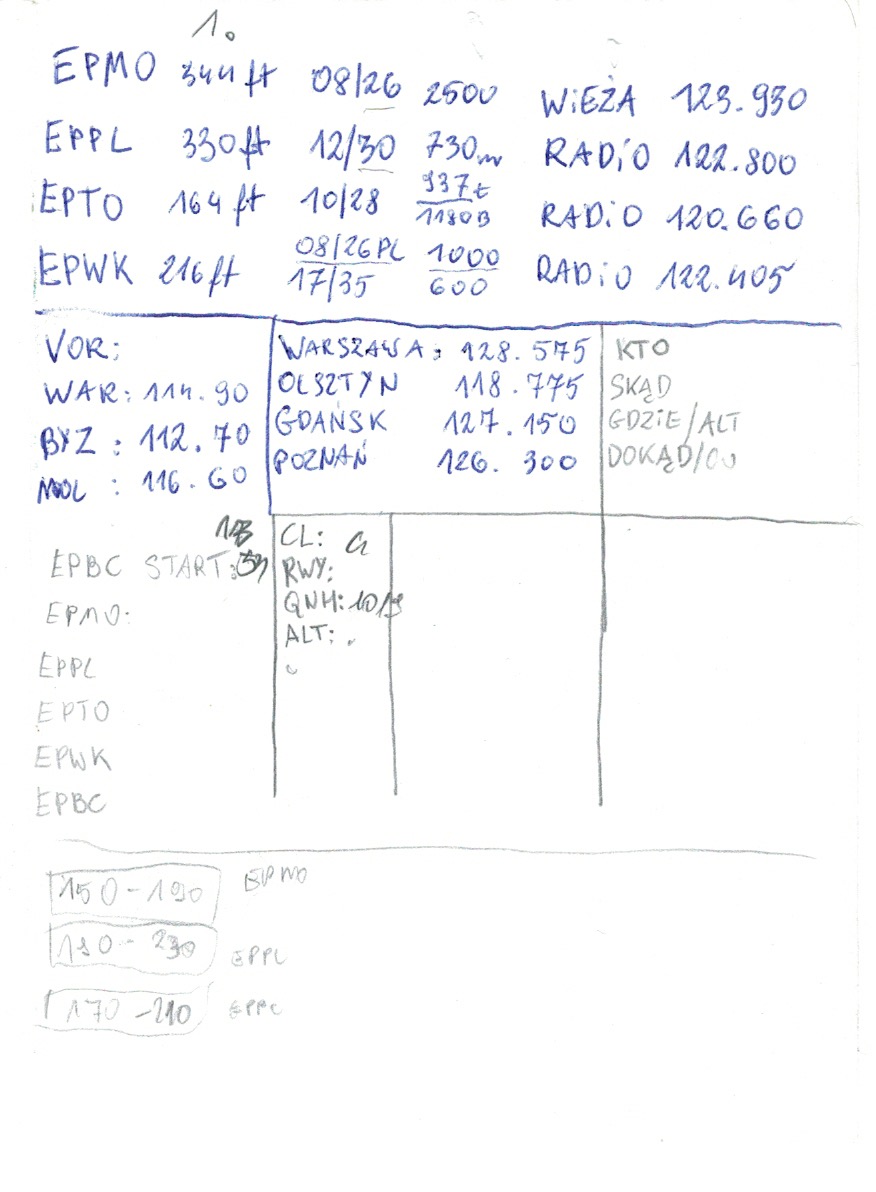 1.
EPMO 344 ft 08/26 2500 WIEŻA 123.930
EPPL 330 ft 12/30 730m RADIO 122.800
EPTO 164 ft 10/28 937t/1180B RADIO 120.660
EPWK 216 ft 08/26PL 1000 RADIO 122.405
17/35 600
VOR:
WAR: 114.90
BYZ : 112.70
MOL : 116.60
WARSZAWA: 128.575
OLSZTYN 118.775
GDAŃSK 127.150
POZNAŃ 126.300
KTO
SKĄD
GDZIE/ALT
DOKĄD/
EPBC START:
EPMO:
EPPL
EPTO
EPWK
EPBC
CL:
RWY:
QNH: 1019
ALT:
150-190 EPMO
190-230 EPPL
170-210